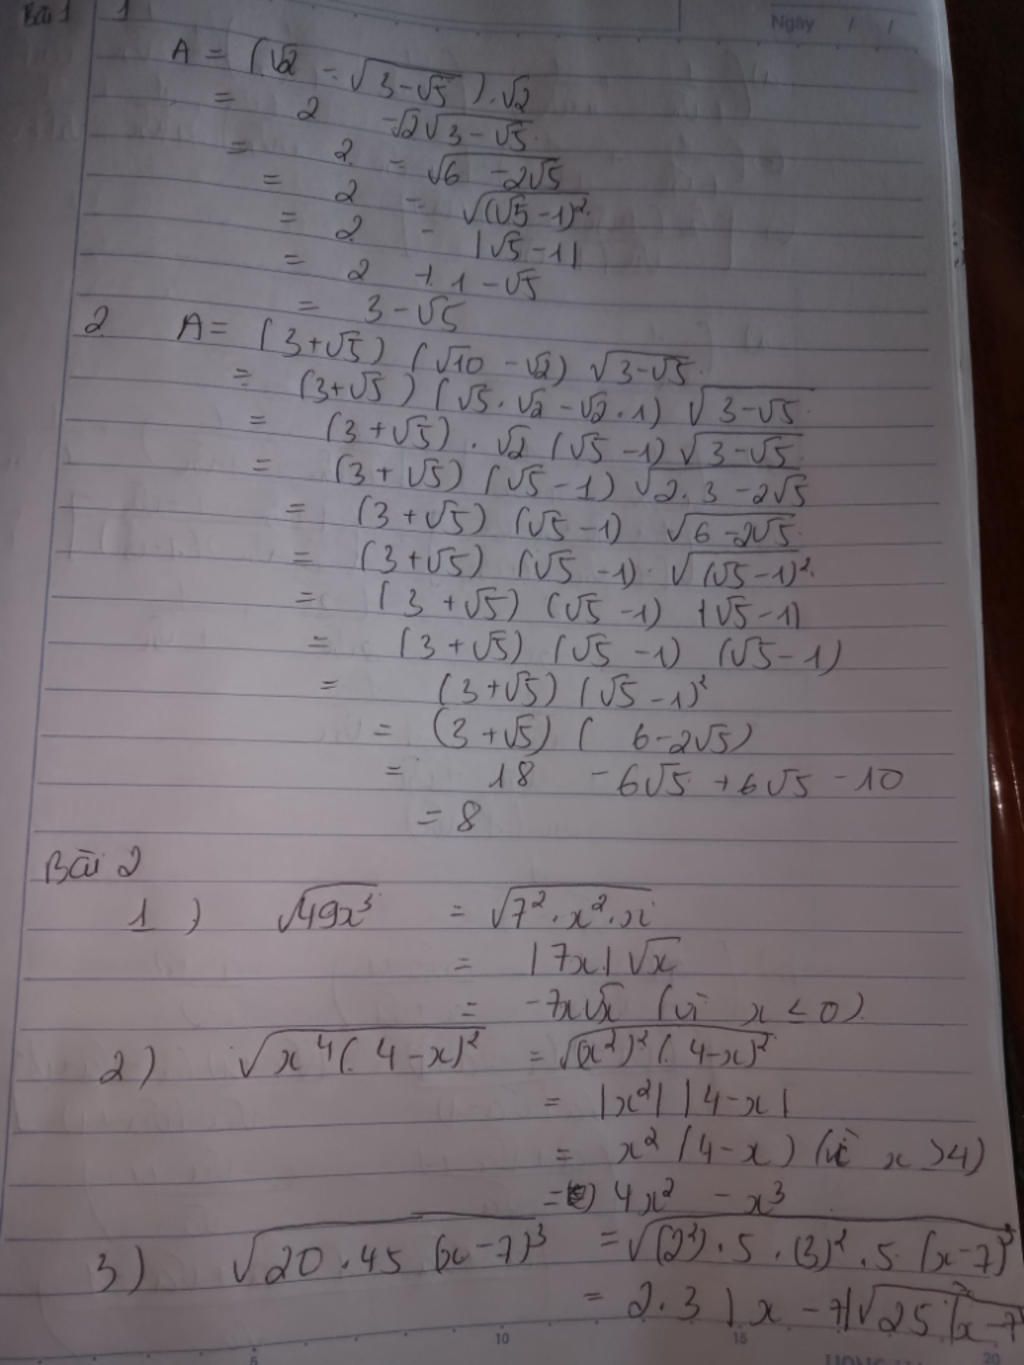 Bài 1 1
Ngày / /
A = (√2 - √(3-√5)).√2
= 2 -√2√(3-√5)
= 2 = √(6 -2√5)
= 2 - √((√5-1)²)
= 2 - |√5-1|
= 2 + 1 -√5
= 3-√5
2 A= (3+√5) (√10 -√2) √(3-√5)
= (3+√5) (√5.√2 -√2.1) √(3-√5)
= (3+√5).√2 (√5 -1) √(3-√5)
= (3+√5) (√5-1) √(2.3 -2√5)
= (3+√5) (√5-1) √(6-2√5)
= (3+√5) (√5 -1). √((√5-1)²)
= (3+√5) (√5 -1) |√5-1|
= (3+√5) (√5 -1) (√5-1)
= (3+√5) (√5 -1)²
= (3+√5) ( 6-2√5)
= 18 -6√5 +6√5 -10
= 8
Bài 2
1) √(49x³) = √(7².x².x)
= |7x|√x
= -7x√x (vì x ≤ 0)
2) √(x⁴(4-x)²) = √((x²)²(4-x)²)
= |x²| |4-x|
= x² (4-x) (vì x >4)
= 4x² - x³
3) √(20.45 (x-7)³) = √((2²).5.(3)².5.(x-7)³)
= 2.3 |x -7|√(25 (x-7
5 10 15 20